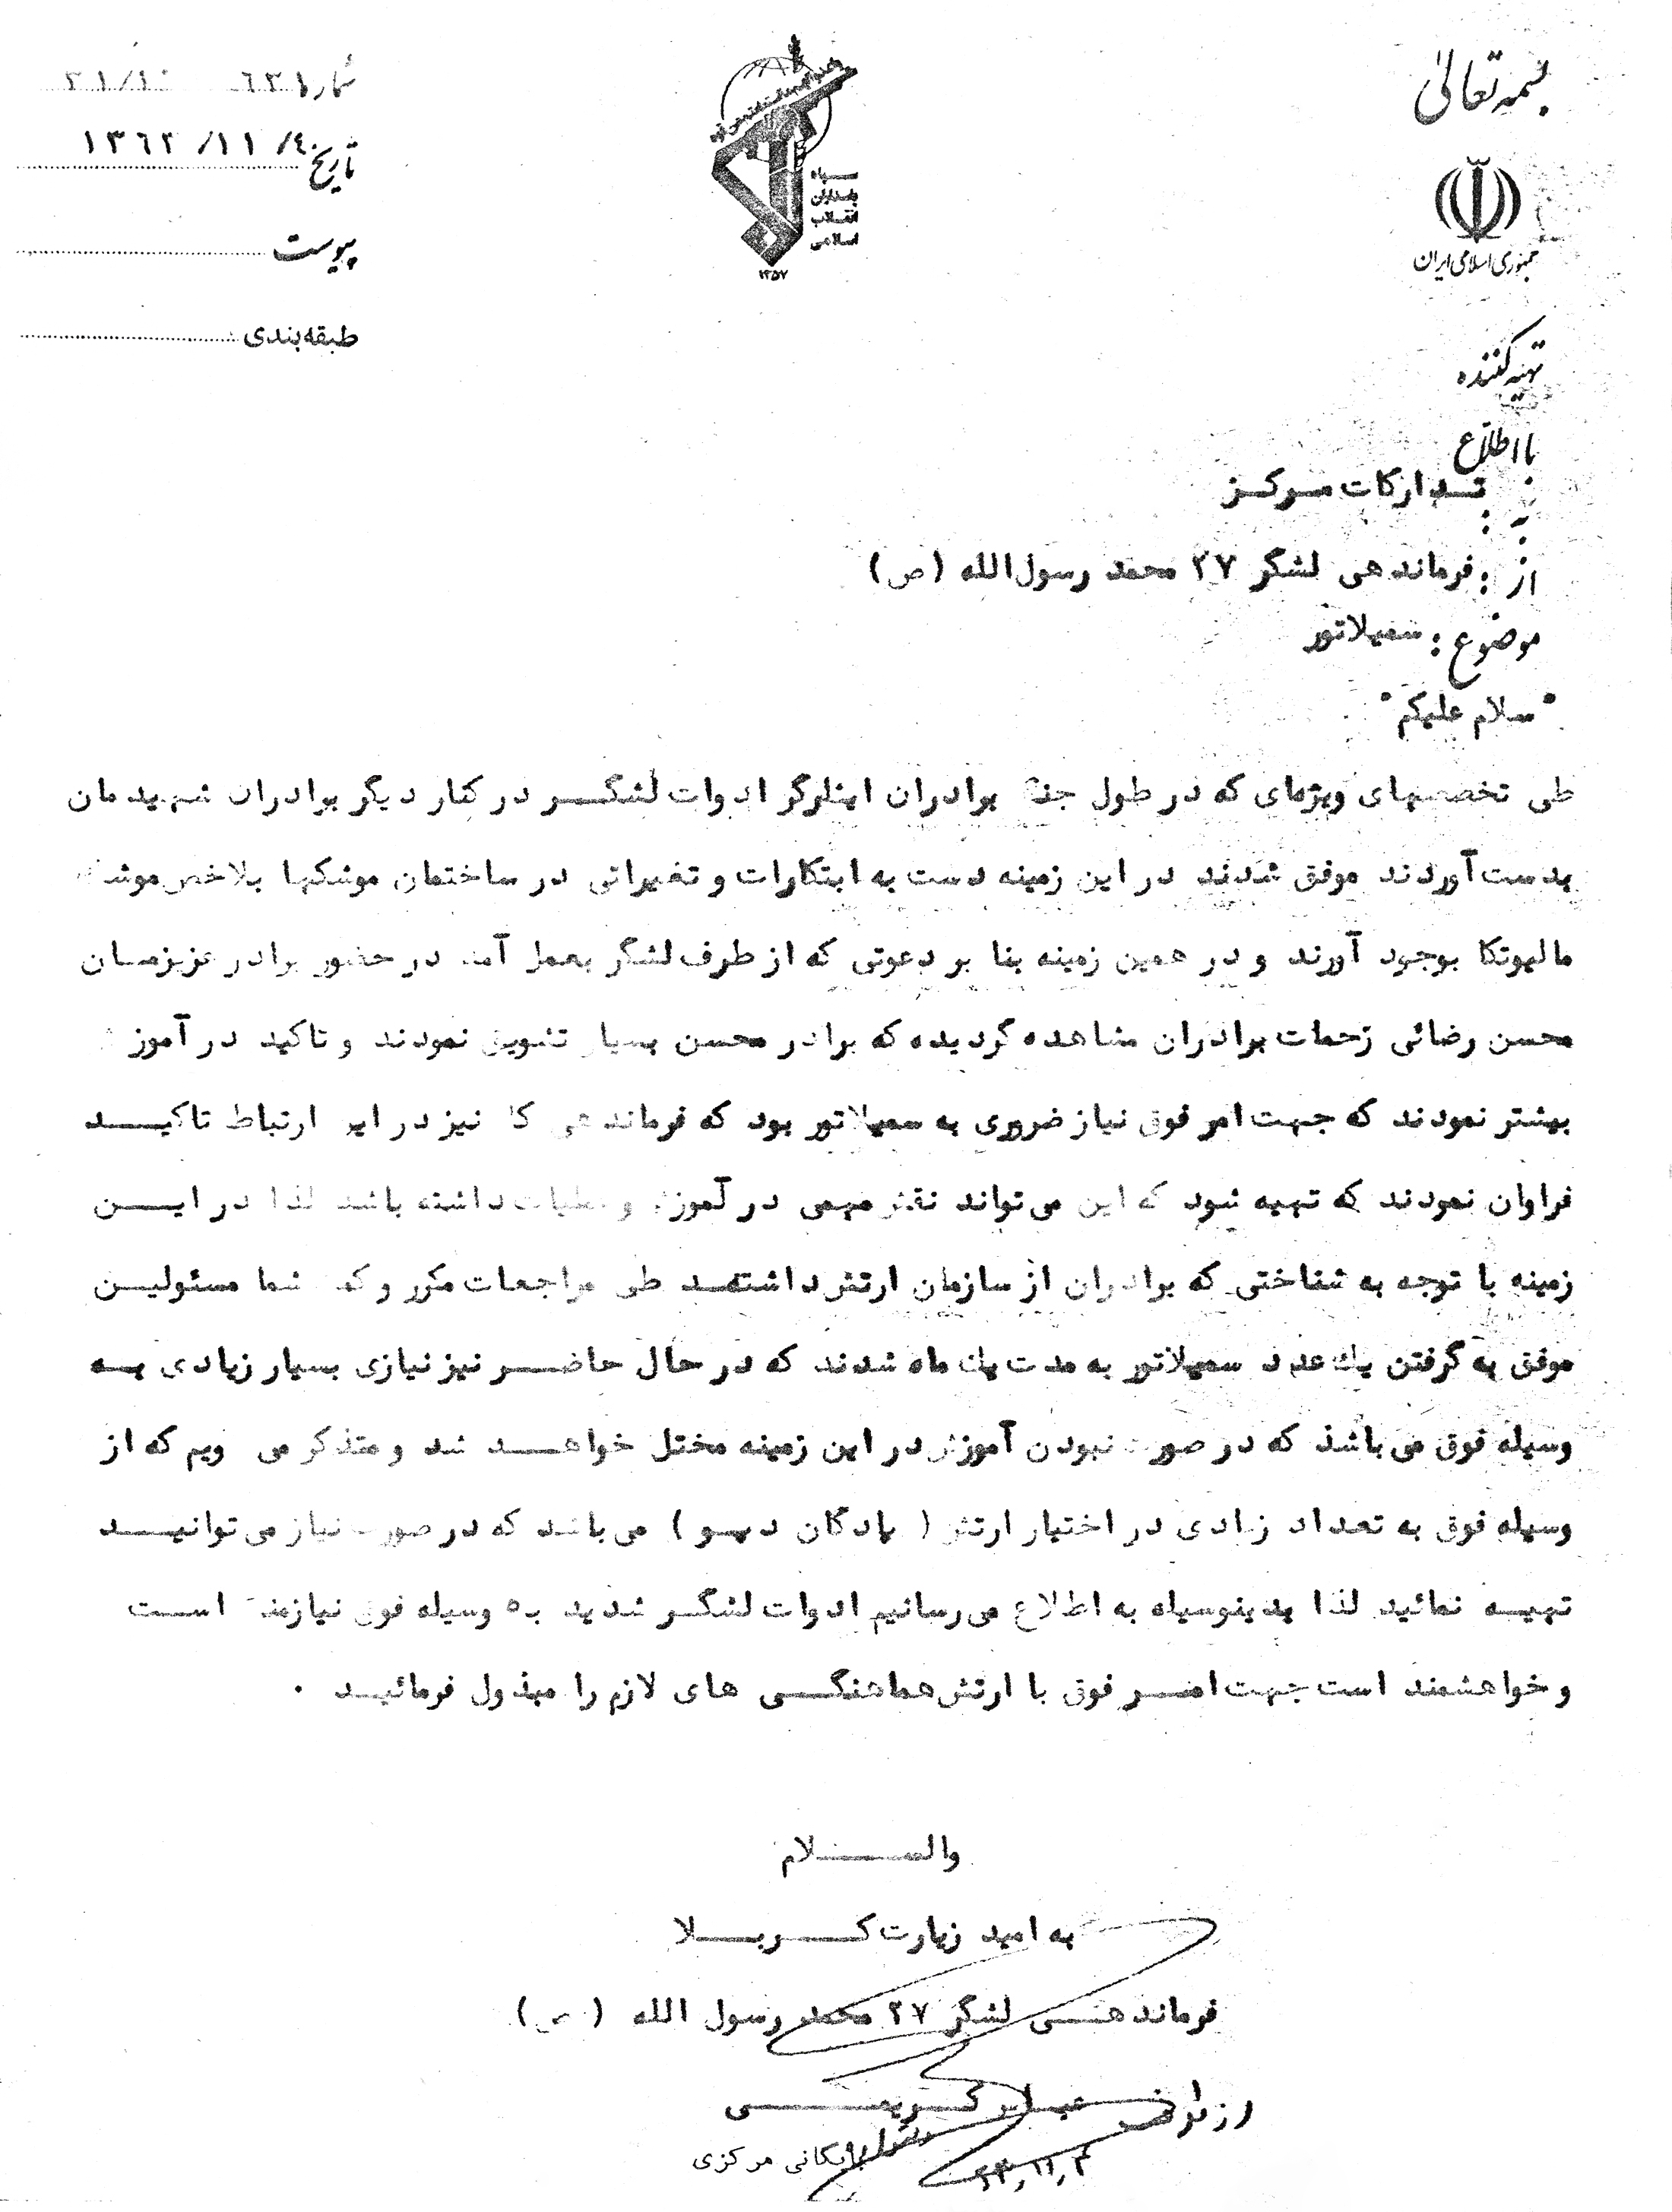 بسمه تعالی
جمهوری اسلامی ایران
سپاه
پاسداران
انقلاب
اسلامی
۱۳۵۷
شماره
تاریخ ۱۳۶۲/۱۱/۴
پیوست
طبقه‌بندی
تهیه کننده
با اطلاع
به : تدارکات مرکز
از : فرماندهی لشگر ۲۷ محمد رسول‌الله (ص)
موضوع : سمیلاتور
" سلام علیکم "
طی تخصصهای ویژه‌ای که در طول جنگ برادران ایثارگر ادوات لشگر در کنار دیگر برادران شهیدمان
بدست آوردند موفق شدند در این زمینه دست به ابتکارات و تغیراتی در ساختمان موشکها بلاخص موشک
مالیوتکا بوجود آورند و در همین زمینه بنا بر دعوتی که از طرف لشگر بعمل آمد در حضور برادر عزیزمان
محسن رضائی زحمات برادران مشاهده گردیده که برادر محسن بسیار تشویق نمودند و تاکید در آموزش
بیشتر نمودند که جهت امر فوق نیاز ضروری به سمیلاتور بود که فرماندهی کل نیز در این ارتباط تاکید
فراوان نمودند که تهیه شود که این می‌تواند نقش مهمی در آموزش و عملیات داشته باشد لذا در این
زمینه با توجه به شناختی که برادران از سازمان ارتش داشتند طی مراجعات مکرر و کمک شما مسئولین
موفق به گرفتن یک عدد سمیلاتور به مدت یک ماه شدند که در حال حاضر نیز نیازی بسیار زیادی به
وسیله فوق می‌باشد که در صورت نبودن آموزش در این زمینه مختل خواهد شد و متذکر می شویم که از
وسیله فوق به تعداد زیادی در اختیار ارتش ( پادگان دپو ) می‌باشد که در صورت نیاز می‌توانید
تهیه نمائید لذا بدینوسیله به اطلاع می‌رسانیم ادوات لشگر شدید به وسیله فوق نیازمند است
و خواهشمند است جهت امر فوق با ارتش هماهنگی های لازم را مبذول فرمائید .
والسلام
به امید زیارت کربلا
فرماندهی لشگر ۲۷ محمد رسول الله (ص)
کریمی
بایگانی مرکزی